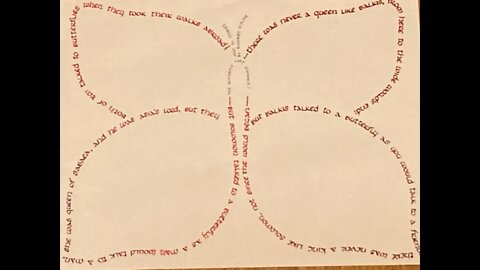 there was never a queen like Balkis, from here to the wide worlds end;
But Balkis talked to a Butterfly as you would talk to a friend
there was never a king like Solomon, not since the world began
But Solomon talked to a Butterfly as a man would talk to a man.
She was queen of Sabaea, and he was Asia's lord, But they
Both of 'em talked to Butterflies when they took their walks abroad!